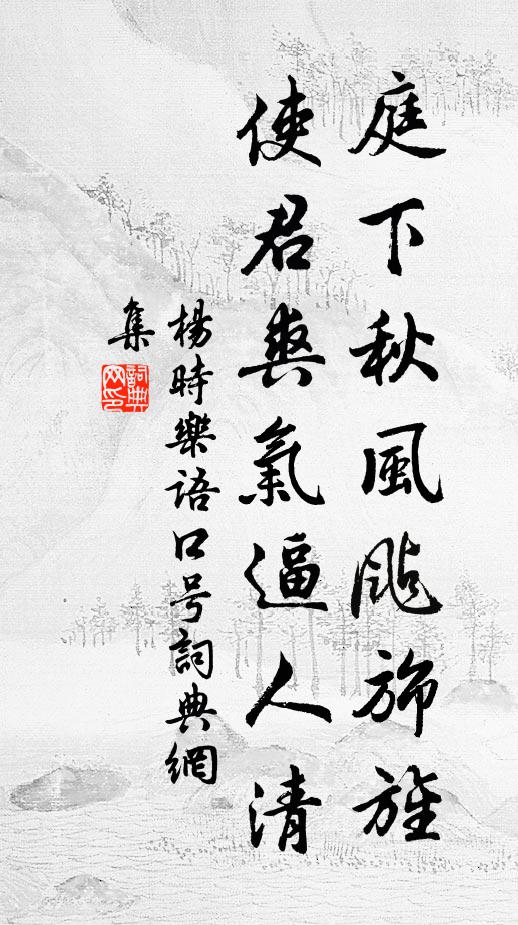 庭下秋風颭旆旌
使君爽氣逼人清
楊時樂語口号詞典網
集
詞典网印